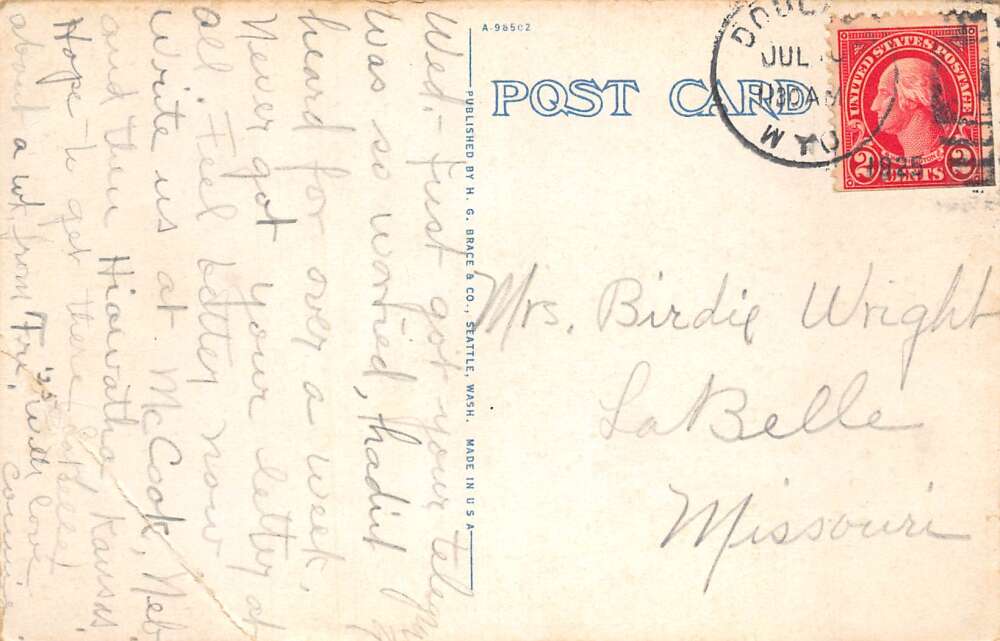 A-98502
POST CARD
PUBLISHED BY H. G. BRACE & CO., SEATTLE, WASH. MADE IN U S A
JUL
30 AM
1925
UNITED STATES POSTAGE
2 CENTS 2
Mrs. Birdie Wright
LaBelle
Missouri
Wed- Just got your
Was so worried, hadnt
heard for over a week,
Never got your letter at
all. Feel better now
Write us at McCook, Neb
and then Hiawatha Kansas.
Hope to get there
about a wk from Fri.
with love